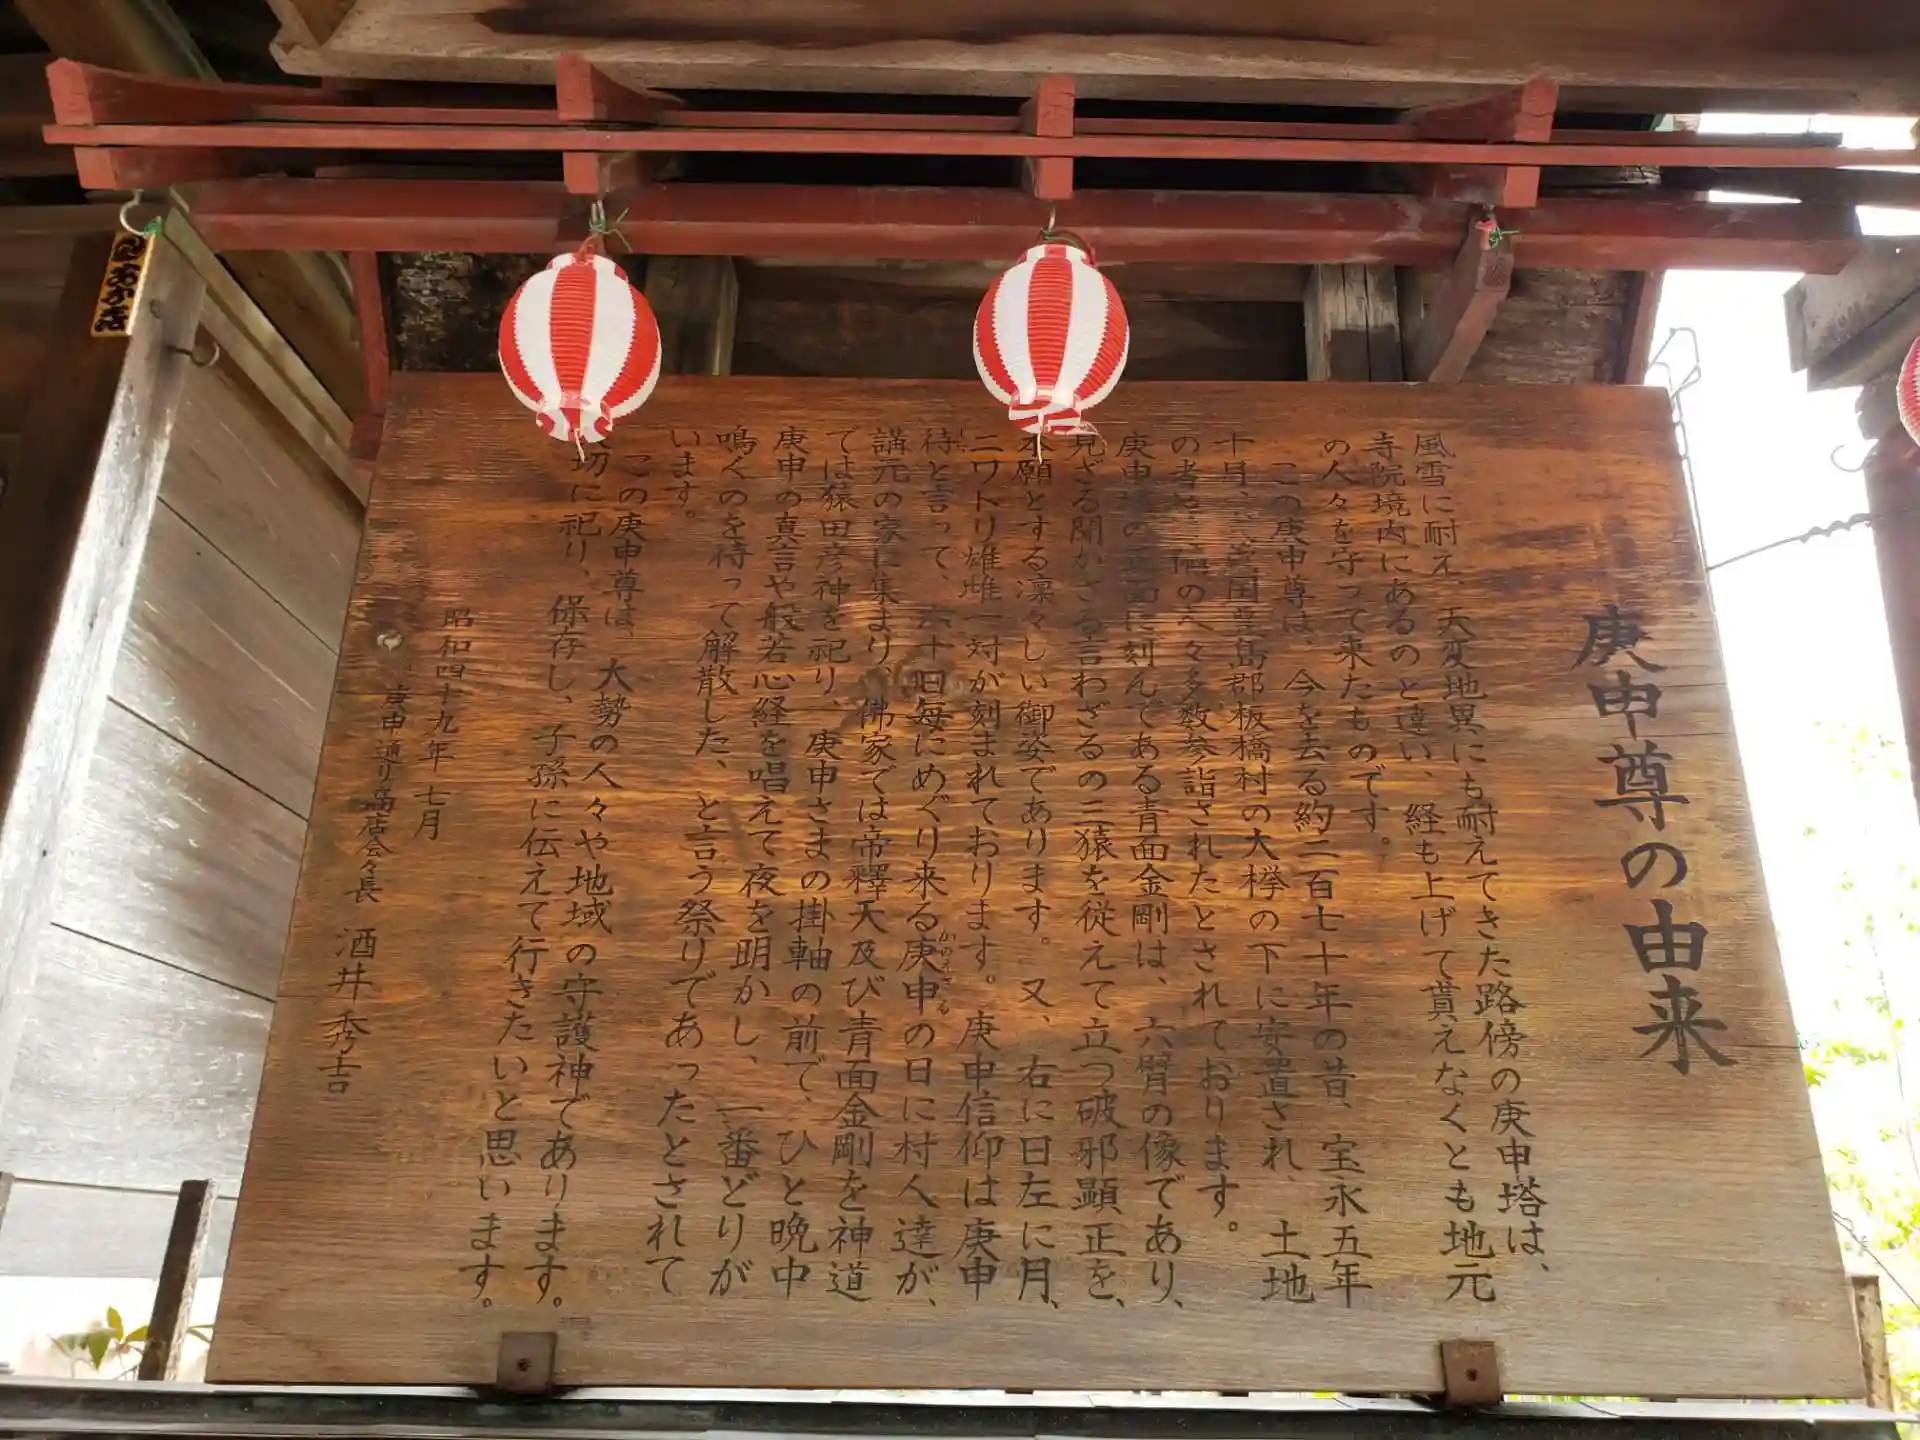 庚申尊の由来
風雪に耐え、天変地異にも耐えてきた路傍の庚申塔は、
寺院境内にあるのと違い、経も上げて貰えなくとも地元
の人々を守って来たものです。
この庚申尊は、今を去る約二百七十年の昔、宝永五年
十月、国豊島郡板橋村の大欅の下に安置され、土地
の者 の人々多数参詣されたとされております。
庚申塔の正面に刻んである青面金剛は、六臂の像であり、
見ざる聞かざる言わざるの三猿を従えて立つ破邪顕正を、
本願とする凛々しい御姿であります。又、右に日左に月、
ニワトリ雄雌一対が刻まれております。庚申信仰は庚申
待と言って、六十日毎にめぐり来る庚申の日に村人達が、
かのえさる
講元の家に集まり、佛家では帝釋天及び青面金剛を神道
では猿田彦神を祀り、庚申さまの掛軸の前で、ひと晩中
庚申の真言や般若心経を唱えて夜を明かし、一番どりが
鳴くのを待って解散した、と言う祭りであったとされて
います。
この庚申尊は、大勢の人々や地域の守護神であります。
切に祀り、保存し、子孫に伝えて行きたいと思います。
昭和四十九年七月
庚申通り商店会々長 酒井秀吉